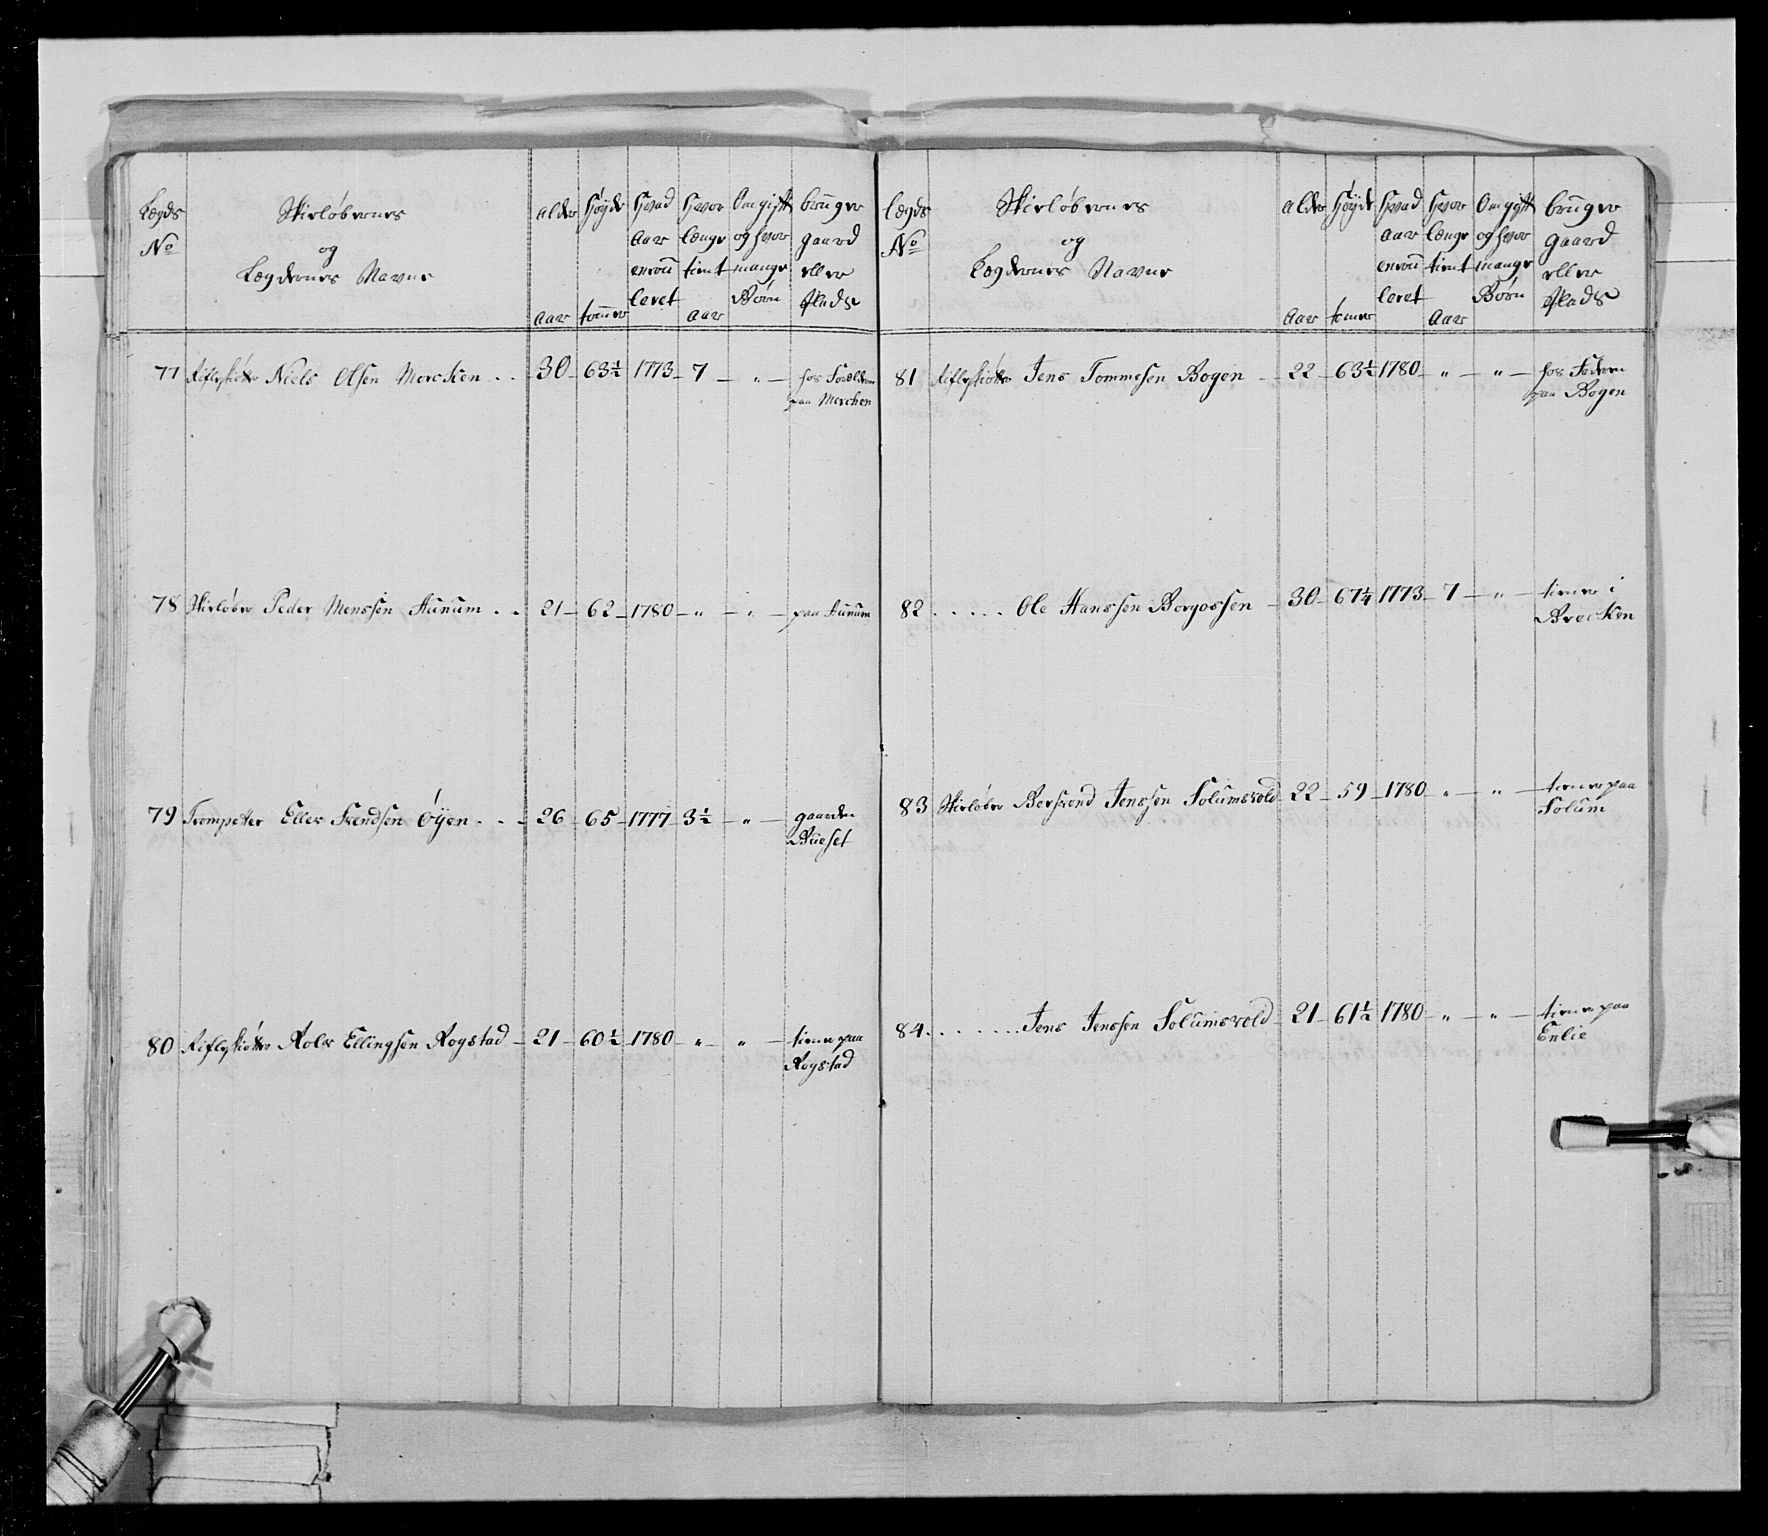 Lægds No | Skieløbernes og Lægdernes Navne | alder Aar | Højde tommer | Hvad Aar enroulleret | Hvor længe tient Aar | Om gift og hvor mange Børn | bruger gaard eller Plads
77 Riflyskiøtte Niels Olsen Mercken . . 30 – 63½ 1773 – 7 – „ – hos Forældrene
paa Merchen
78 Skieløber Peder Monssen Aunum . . 21 – 62 – 1780 – „ – „ – paa Aunum
79 Trompeter Eller Svendsen Öÿen . . . 26 – 65 – 1777 – 3½ – „ – gaarden
Bueset
80 Riflyskiøtte Roler Ellingsen Rogstad – 21 – 60½ – 1780 – „ – „ – tiener paa
Rogstad
Lægds No | Skieløbernes og Lægdernes Navne | alder Aar | Højde tommer | Hvad Aar enroulleret | Hvor længe tient Aar | Om gift og hvor mange Børn | bruger gaard eller Plads
81 Riflyskiøtte Jens Tommesen Bogen – 22 – 63½ 1780 – „ – „ – hos Faderen
paa Bogen
82 . . . . . Ole Hanssen Borgossen – 30 – 67¼ 1773 – 7 – „ – tiener i
Brecken
83 Skieløber Bersvend Jenssen Solumsvold – 22 – 59 – 1780 – „ – „ – tiener paa
Solum
84 . . . . . . . Jens Jenssen Solumsvold – 21 – 61½ 1780 – „ – „ – tiener paa
Enlie